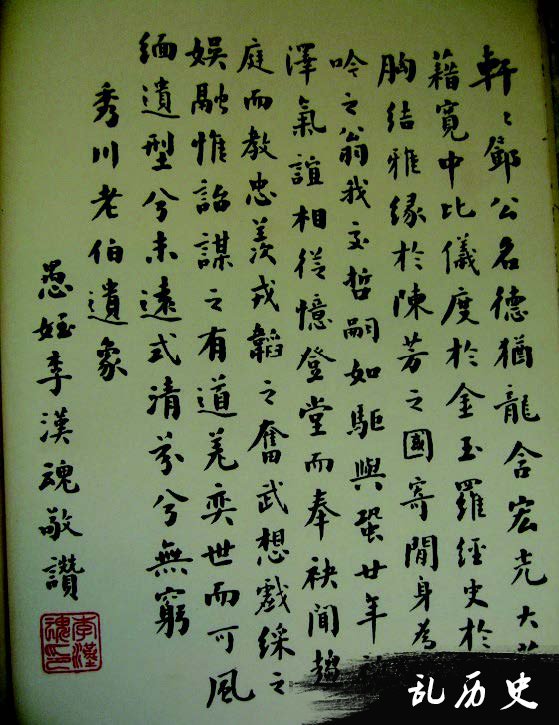 軒〻鄧公名德猶龍含宏光大
藉寬中比儀度於金玉羅經史於
胸結雅緣於陳芳之國寄閒身為
吟之翁我交哲嗣如駏與蛩廿年
澤氣誼相從憶登堂而奉袂聞趨
庭而教忠羨戎韜之奮武想戲綵之
娛融惟詒謀之有道羌奕世而可風
緬遺型兮未遠式清芬兮無窮
秀川老伯遺象
愚姪李漢魂敬讚
李漢魂印
乱历史